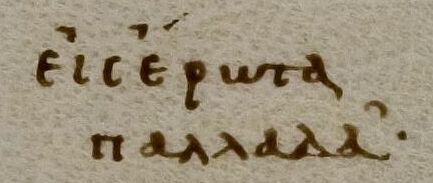 εἰς ἔρωτα
παλλαδᾶ·